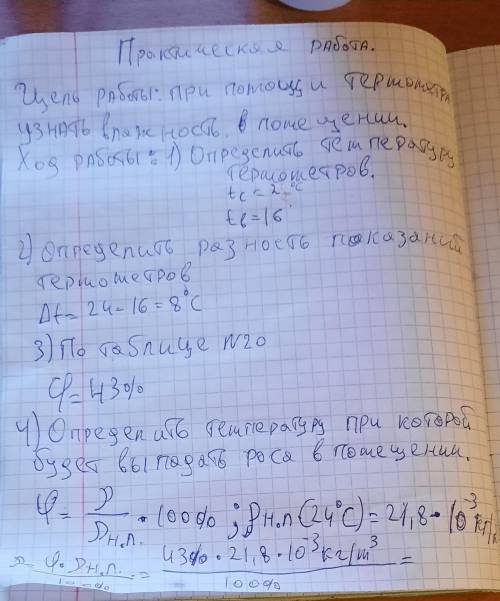 Практическая работа.
Цель работы: при помощи термометра
узнать влажность в помещении.
Ход работы: 1) Определить температуру
термометров.
tc = 2 °C
tв = 16
2) Определить разность показаний
термометров
Δt = 24 - 16 = 8°C
3) По таблице N20
φ = 43%
4) Определить температуру при которой
будет выпадать роса в помещении.
φ = ρ / ρн.п. · 100% ; ρн.п (24°C) = 21,8 · 10⁻³ кг/
ρ = φ · ρн.п. / 100% = 43% · 21,8 · 10⁻³ кг/m³ / 100% =